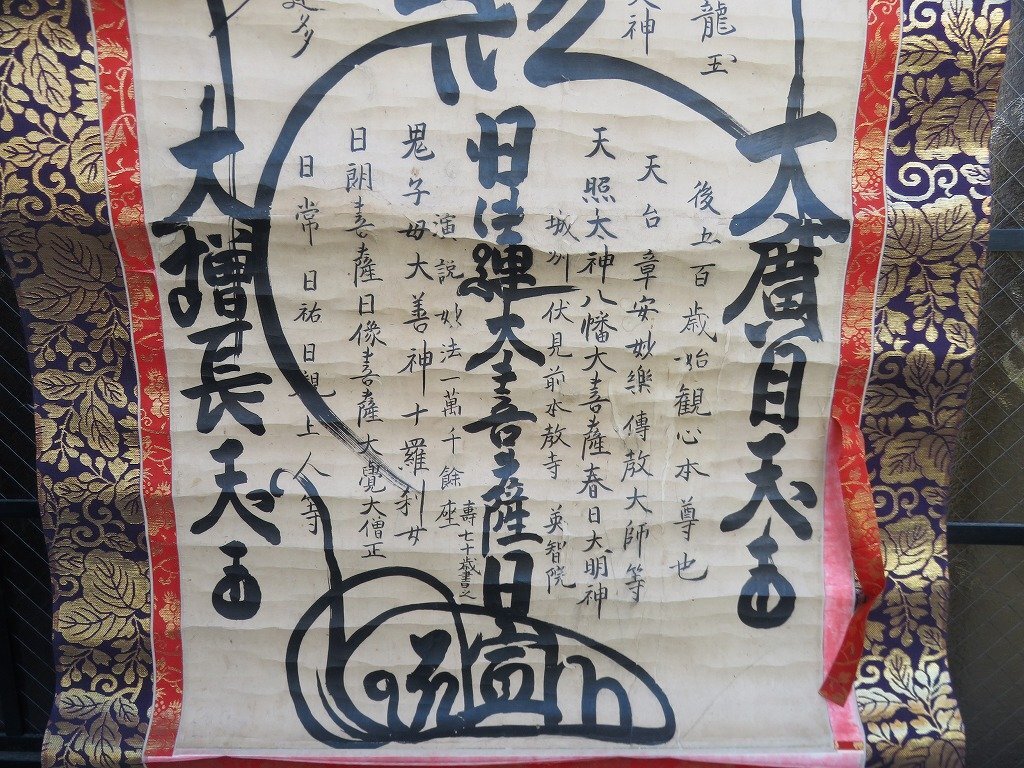 龍玉
天神
大廣目天玉
後五百歳始観心本尊也
天台章安妙樂傳教大師等
天照大神八幡大菩薩春日大明神
城州伏見前本教寺 英智院
日蓮大菩薩 日
演説妙法一萬千餘座
壽七十歳書之
鬼子母大善神十羅刹女
日朗菩薩日像菩薩大覺大僧正
日常日祐日親上人等
大增長天玉